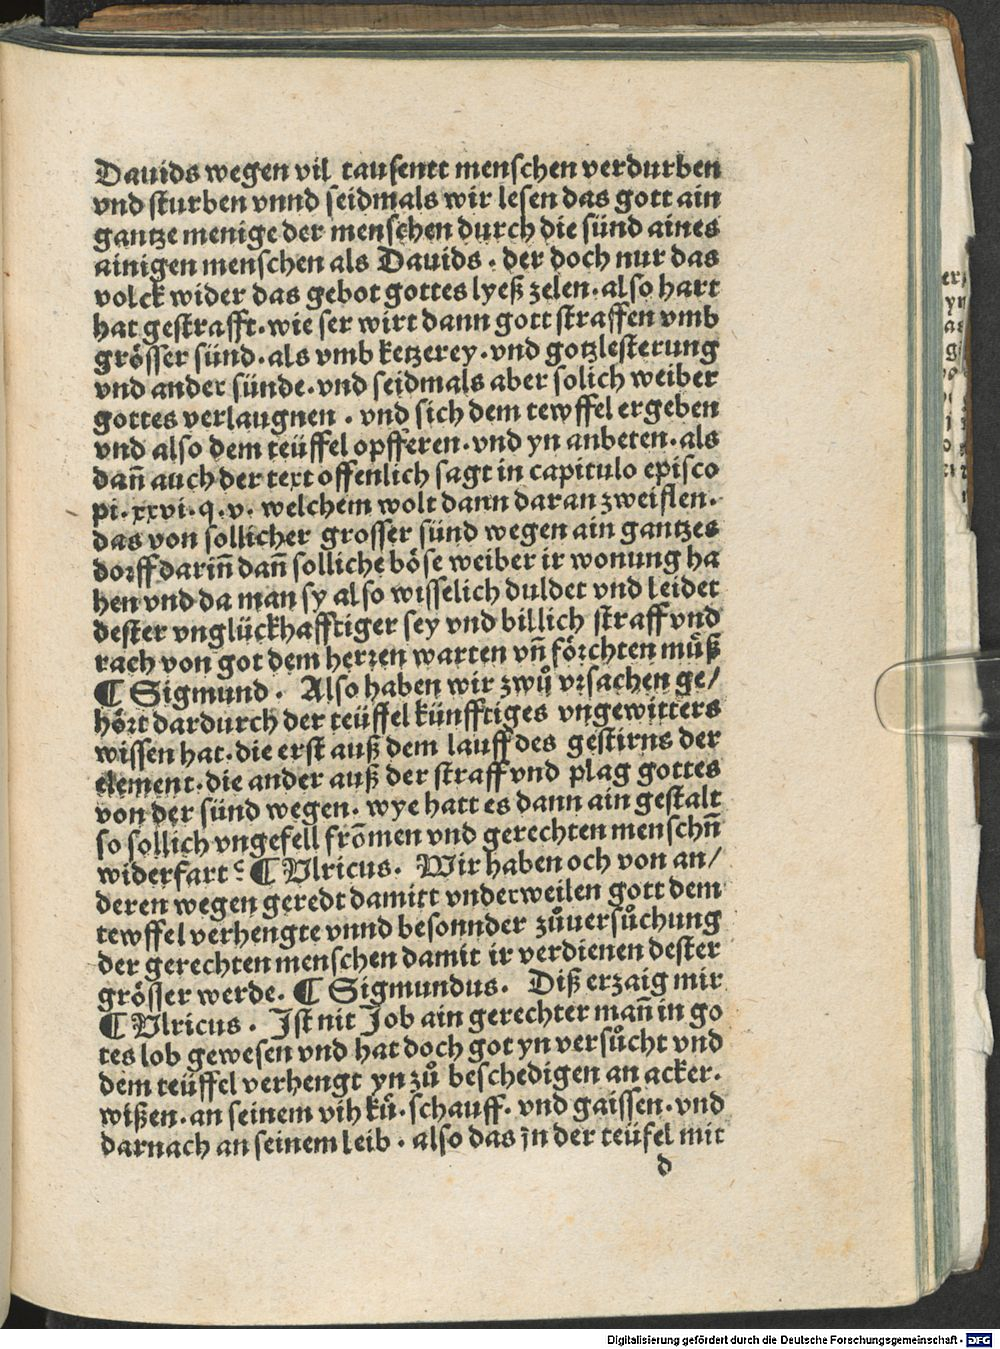 Dauids wegen vil tausentt menschen verdurben
vnd sturben vnnd seidmals wir lesen das gott ain
gantze menige der menschen durch die sünd aines
ainigen menschen als Dauids. der doch nur das
volck wider das gebot gottes lyeß zelen. also hart
hat gestrafft. wie ser wirt dann gott straffen vmb
grösser sünd. als vmb ketzerey. vnd gotzlesterung
vnd ander sünde. vnd seidmals aber solich weiber
gottes verlaugnen. vnd sich dem tewffel ergeben
vnd also dem teüffel opfferen. vnd yn anbeten. als
dañ auch der text offenlich sagt in capitulo episco
pi. xxvi. q. v. welchem wolt dann daran zweiflen.
das von sollicher grosser sünd wegen ain gantzes
dorff dariñ dañ solliche böse weiber ir wonung ha
hen vnd da man sy also wisselich duldet vnd leidet
dester vnglückhafftiger sey vnd billich straff vnd
rach von got dem herren warten vñ förchten müß
¶ Sigmund. Also haben wir zwů vrsachen ge/
hört dardurch der teüffel künfftiges vngewitters
wissen hat. die erst auß dem lauff des gestirns der
element. die ander auß der straff vnd plag gottes
von der sünd wegen. wye hatt es dann ain gestalt
so sollich vngefell frömen vnd gerechten menschñ
widerfart ¶ Vlricus. Wir haben och von an/
deren wegen geredt damitt vnderweilen gott dem
tewffel verhengte vnnd besonnder zůuersůchung
der gerechten menschen damit ir verdienen dester
grösser werde. ¶ Sigmundus. Diß erzaig mir
¶ Vlricus. Ist nit Job ain gerechter mañ in go
tes lob gewesen vnd hat doch got yn versůcht vnd
dem teüffel verhengt yn zů beschedigen an acker.
wißen. an seinem vih kü. schauff. vnd gaissen. vnd
darnach an seinem leib. also das jn der teüfel mit
d
Digitalisierung gefördert durch die Deutsche Forschungsgemeinschaft - DFG